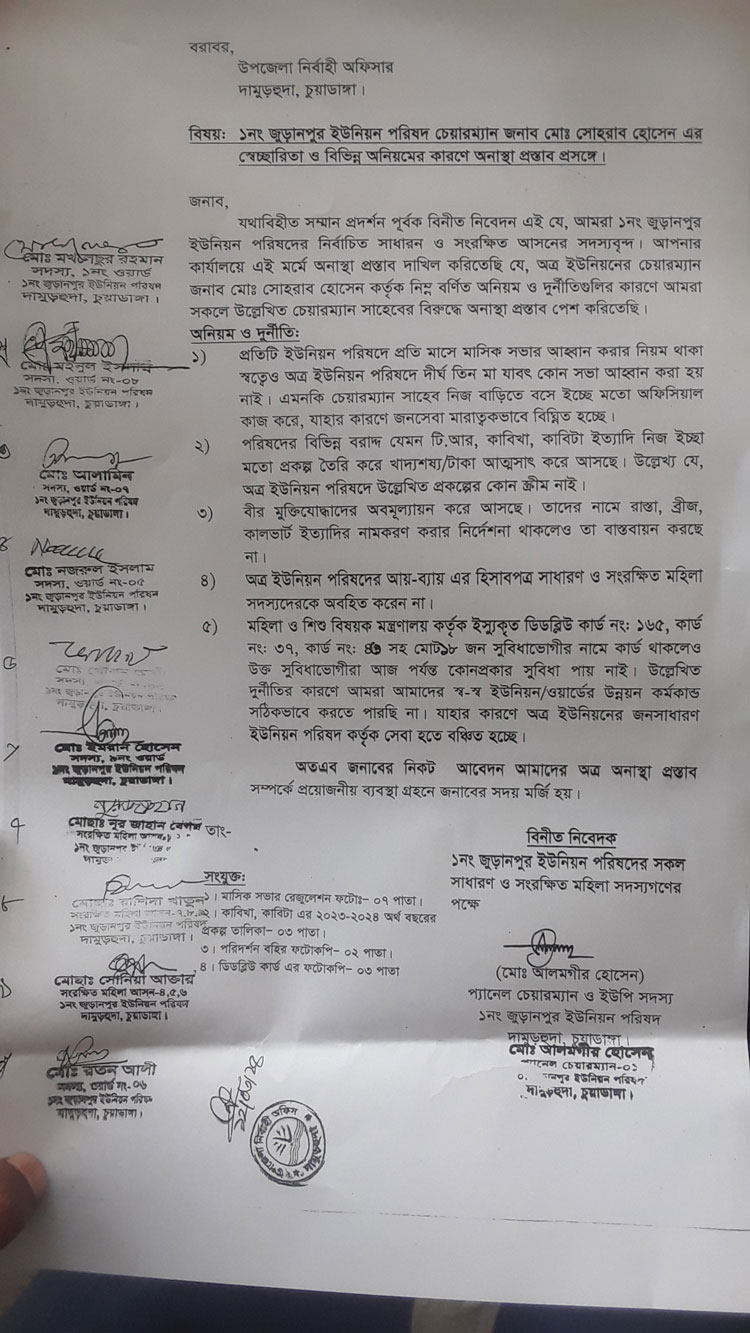 বরাবর,
উপজেলা নির্বাহী অফিসার
দামুড়হুদা, চুয়াডাঙ্গা।
বিষয়: ১নং জুড়ানপুর ইউনিয়ন পরিষদ চেয়ারম্যান জনাব মোঃ সোহরাব হোসেন এর
স্বেচ্ছারিতা ও বিভিন্ন অনিয়মের কারণে অনাস্থা প্রস্তাব প্রসঙ্গে।
জনাব,
যথাবিহীত সম্মান প্রদর্শন পূর্বক বিনীত নিবেদন এই যে, আমরা ১নং জুড়ানপুর
ইউনিয়ন পরিষদের নির্বাচিত সাধারন ও সংরক্ষিত আসনের সদস্যবৃন্দ। আপনার
কার্যালয়ে এই মর্মে অনাস্থা প্রস্তাব দাখিল করিতেছি যে, অত্র ইউনিয়নের চেয়ারম্যান
জনাব মোঃ সোহরাব হোসেন কর্তৃক নিম্ন বর্ণিত অনিয়ম ও দুর্নীতিগুলির কারণে আমরা
সকলে উল্লেখিত চেয়ারম্যান সাহেবের বিরুদ্ধে অনাস্থা প্রস্তাব পেশ করিতেছি।
অনিয়ম ও দুর্নীতি:
১) প্রতিটি ইউনিয়ন পরিষদে প্রতি মাসে মাসিক সভার আহ্বান করার নিয়ম থাকা
স্বত্বেও অত্র ইউনিয়ন পরিষদে দীর্ঘ তিন মা যাবৎ কোন সভা আহ্বান করা হয়
নাই। এমনকি চেয়ারম্যান সাহেব নিজ বাড়িতে বসে ইচ্ছে মতো অফিসিয়াল
কাজ করে, যাহার কারণে জনসেবা মারাত্নকভাবে বিঘ্নিত হচ্ছে।
২) পরিষদের বিভিন্ন বরাদ্দ যেমন টি.আর, কাবিখা, কাবিটা ইত্যাদি নিজ ইচ্ছা
মতো প্রকল্প তৈরি করে খাদ্যশষ্য/টাকা আত্মসাৎ করে আসছে। উল্লেখ্য যে,
অত্র ইউনিয়ন পরিষদে উল্লেখিত প্রকল্পের কোন স্ক্রীম নাই।
৩) বীর মুক্তিযোদ্ধাদের অবমূল্যায়ন করে আসছে। তাদের নামে রাস্তা, ব্রীজ,
কালভার্ট ইত্যাদির নামকরণ করার নির্দেশনা থাকলেও তা বাস্তবায়ন করছে
না।
৪) অত্র ইউনিয়ন পরিষদের আয়-ব্যয় এর হিসাবপত্র সাধারণ ও সংরক্ষিত মহিলা
সদস্যদেরকে অবহিত করেন না।
৫) মহিলা ও শিশু বিষয়ক মন্ত্রণালয় কর্তৃক ইস্যুকৃত ভিডব্লিউ কার্ড নং: ১৬৫, কার্ড
নং: ৩৭, কার্ড নং: সহ মোট১৮ জন সুবিধাভোগীর নামে কার্ড থাকলেও
উক্ত সুবিধাভোগীরা আজ পর্যন্ত কোনপ্রকার সুবিধা পায় নাই। উল্লেখিত
দুর্নীতির কারণে আমরা আমাদের স্ব-স্ব ইউনিয়ন/ওয়ার্ডের উন্নয়ন কর্মকান্ড
সঠিকভাবে করতে পারছি না। যাহার কারণে অত্র ইউনিয়নের জনসাধারণ
ইউনিয়ন পরিষদ কর্তৃক সেবা হতে বঞ্চিত হচ্ছে।
অতএব জনাবের নিকট আবেদন আমাদের অত্র অনাস্থা প্রস্তাব
সম্পর্কে প্রয়োজনীয় ব্যবস্থা গ্রহনে জনাবের সদয় মর্জি হয়।
বিনীত নিবেদক
১নং জুড়ানপুর ইউনিয়ন পরিষদের সকল
সাধারণ ও সংরক্ষিত মহিলা সদস্যগণের
পক্ষে
(মোঃ আলমগীর হোসেন)
প্যানেল চেয়ারম্যান ও ইউপি সদস্য
১নং জুড়ানপুর ইউনিয়ন পরিষদ
দামুড়হুদা, চুয়াডাঙ্গা।
মোঃ আলমগীর হোসেন
চেয়ারম্যান-০১
ইউনিয়ন পরিষদ
চুয়াডাঙ্গা।
তাং-
সংযুক্ত:
১। মাসিক সভার রেজুলেশন ফটোঃ- ০৭ পাতা।
২। কাবিখা, কাবিটা এর ২০২৩-২০২৪ অর্থ বছরের
প্রকল্প তালিকা- ০৩ পাতা।
৩। পরিদর্শন বহির ফটোকপি- ০২ পাতা।
৪। ভিডব্লিউ কার্ড এর ফটোকপি- ০৩ পাতা
রহমান
সদস্য, ১নং ওয়ার্ড
১নং জুড়ানপুর ইউনিয়ন পরিষদ
দামুড়হুদা, চুয়াডাঙ্গা।
সদস্য, ওয়ার্ড নং-০৮
১নং জুড়ানপুর ইউনিয়ন পরিষদ
দামুড়হুদা, চুয়াডাঙ্গা।
মোঃ আলামিন
সদস্য, ওয়ার্ড নং-০৭
১নং জুড়ানপুর ইউনিয়ন পরিষদ
দামুড়হুদা, চুয়াডাঙ্গা।
মোঃ নজরুল ইসলাম
সদস্য, ওয়ার্ড নং-০৫
১নং জুড়ানপুর ইউনিয়ন পরিষদ
দামুড়হুদা, চুয়াডাঙ্গা।
মোঃ ইমরান হোসেন
১নং জুড়ানপুর ইউনিয়ন পরিষদ
দামুড়হুদা, চুয়াডাঙ্গা।
মোছাঃ নুর জাহান বেগম
সংরক্ষিত মহিলা
১নং জুড়ানপুর
খাতুন
১নং জুড়ানপুর ইউনিয়ন পরিষদ
দামুড়হুদা, চুয়াডাঙ্গা।
মোছাঃ সোনিয়া আক্তার
সংরক্ষিত মহিলা আসন-৪,৫,৬
১নং জুড়ানপুর ইউনিয়ন পরিষদ
দামুড়হুদা, চুয়াডাঙ্গা।
মোঃ রতন আলী
সদস্য, ওয়ার্ড নং-০৬
১নং জুড়ানপুর ইউনিয়ন পরিষদ
দামুড়হুদা, চুয়াডাঙ্গা।